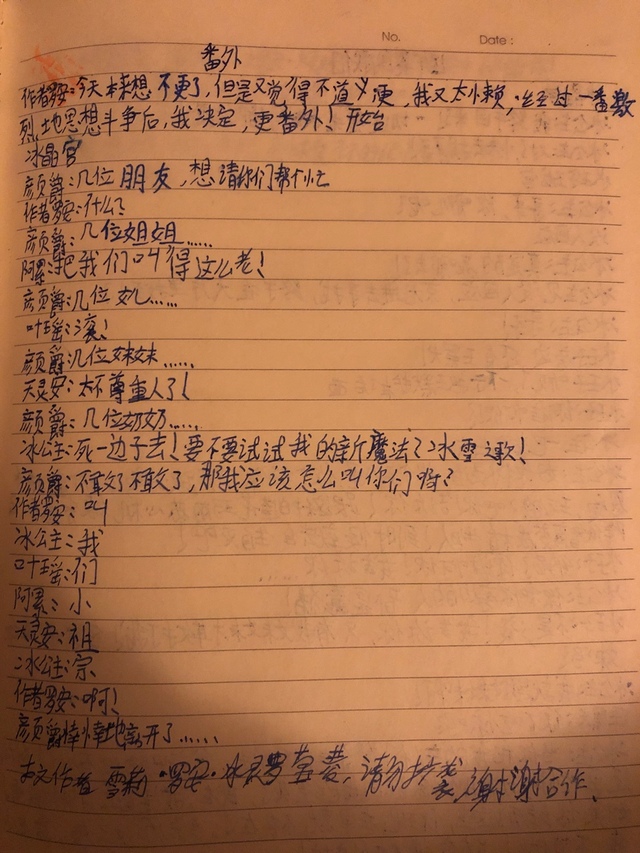 No. Date:
番外
作者罗安:今天本来想不更了,但是又觉得不道义更,我又太懒,经过一番激
烈地思想斗争后,我决定,更番外!开始
冰晶宫
颜爵:几位朋友,想请你们帮个忙
作者罗安:什么?
颜爵:几位姐姐……
阿累:把我们叫得这么老!
颜爵:几位女儿……
叶瑶:滚!
颜爵:几位妹妹……
天灵安:太不尊重人了!
颜爵:几位奶奶……
冰公主:死一边子去!要不要试试我的新魔法了冰雪之歌!
颜爵:不敢了不敢了,那我应该怎么叫你们呀?
作者罗安:叫
冰公主:我
叶瑶:们
阿累:小
天灵安:祖
冰公主:宗
作者罗安:啊!
颜爵悻悻地离开了……
本文作者 雪莉·罗安·冰灵罗 ,请勿抄袭,谢谢合作、